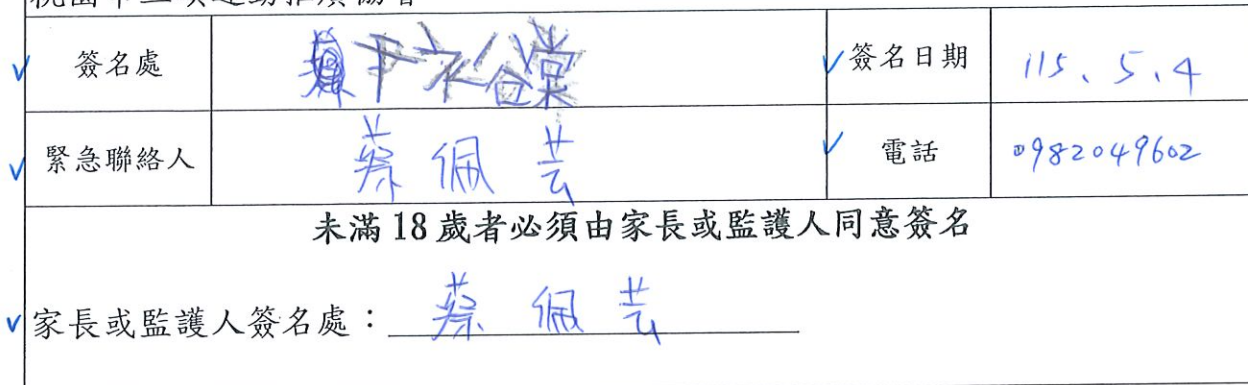 簽名處 簽名日期 115、5、4
緊急聯絡人 蔡佩芸 電話 0982049602
未滿18歲者必須由家長或監護人同意簽名
家長或監護人簽名處：蔡佩芸